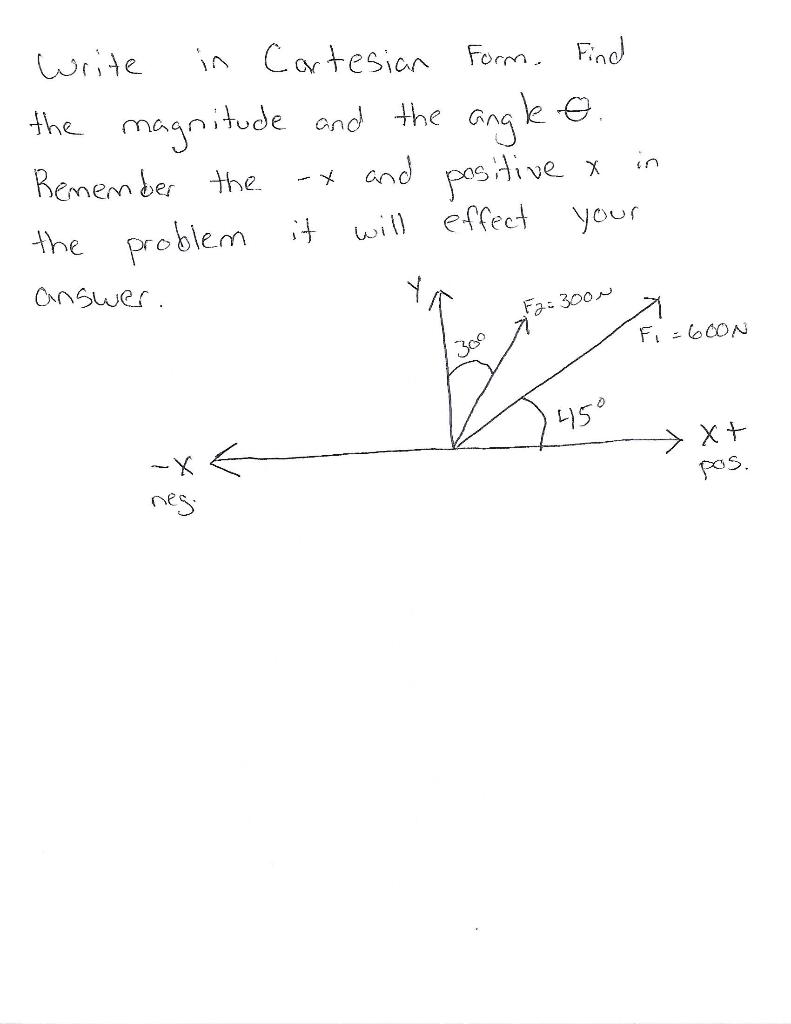 Write in Cartesian Form. Find
the magnitude and the angle θ.
Remember the -x and positive x in
the problem it will effect your
answer.
Y
F2=300N
30°
F1=600N
45°
X+
pos.
-X
neg.